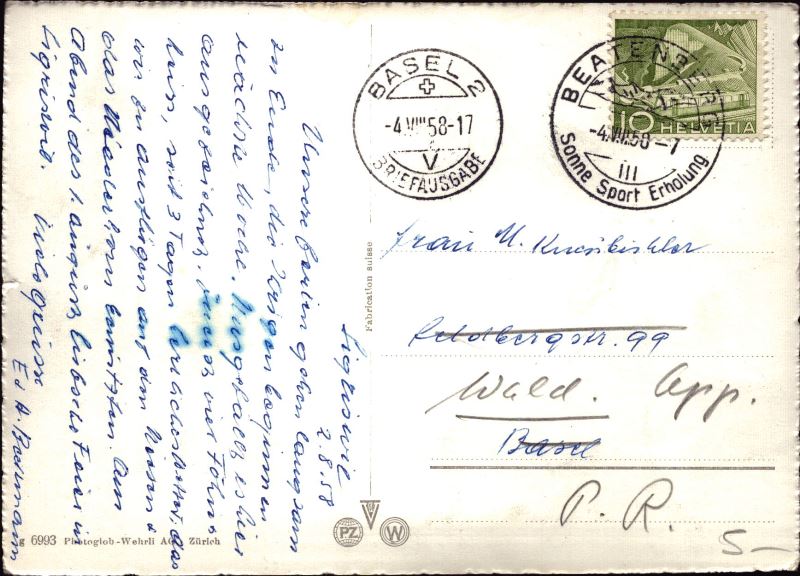 Sigriswil
2.8.58
Unsere Ferien gehen langsam
zu Ende, die Ihrigen beginnen
nächste Woche. Uns gefällt es hier
ausgezeichnet, immer viel Föhn,
seit 3 Tagen das
wir zu Ausflügen auf den Niesen &
das Niederhorn benützten. Am
Abend des 1. August hübsche Feier in
Sigriswil. Viele Grüsse
Ed. A. Bachmann
6993 Photoglob-Wehrli AG, Zürich
Fabrication suisse
PZ
W
BASEL 2
-4.VIII.58-17
V
BRIEFAUSGABE
BEATENBERG
-4.VIII.58-7
III
Sonne Sport Erholung
10 HELVETIA
Frau M.
Feldbergstr. 99
Wald. App.
Basel
P. R.
5-